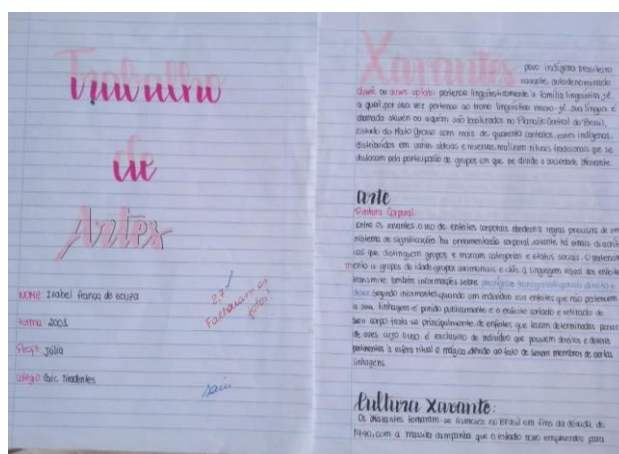 Trabalho
de
Artes
NOME: Isabel França de Souza
turma 2001
Profª Júlia
colégio: Ibic Tiradentes
2,7
Faltaram as
fotos!
Xavantes
povo indígena brasileiro
xavante, autodenominado
ou pertence linguisticamente a família linguística jê,
a qual por sua vez pertence ao tronco linguístico macro-jê. sua língua é
chamada e são localizados no Planalto Central do Brasil,
estado do Mato Grosso com mais de quarenta contatos, esses indígenas,
distribuídos em várias aldeias e reservas, realizam rituais tradicionais que se
destacam pela participação de grupos em que se divide a sociedade Xavante.
arte
Pintura Corporal:
Entre os xavantes o uso de enfeites corporais obedece a regras precisas de um
sistema de significação. na ornamentação corporal xavante há sinais
cos que distinguem grupos e marcam categorias e status sociais. O
mento a grupos de idade, grupos cerimoniais e clãs a linguagem visual dos enfeites
transmite também informações sobre
segundo informantes, quando um indivíduo usa enfeites que não pertencem
a sua linhagem é punido publicamente e o enfeite cortado e retirado de
seu corpo trata-se principalmente de enfeites que levam determinadas penas
de aves cujo uso é exclusivo de indivíduo que possuem direitos e deveres
pertinentes a esfera ritual e mágica devido ao fato de serem membros de certas
linhagens.
Cultura Xavante:
Os Xavantes tornaram-se famosos no Brasil em fins da década de
1940, com a massiva campanha que o estado novo empreendeu para